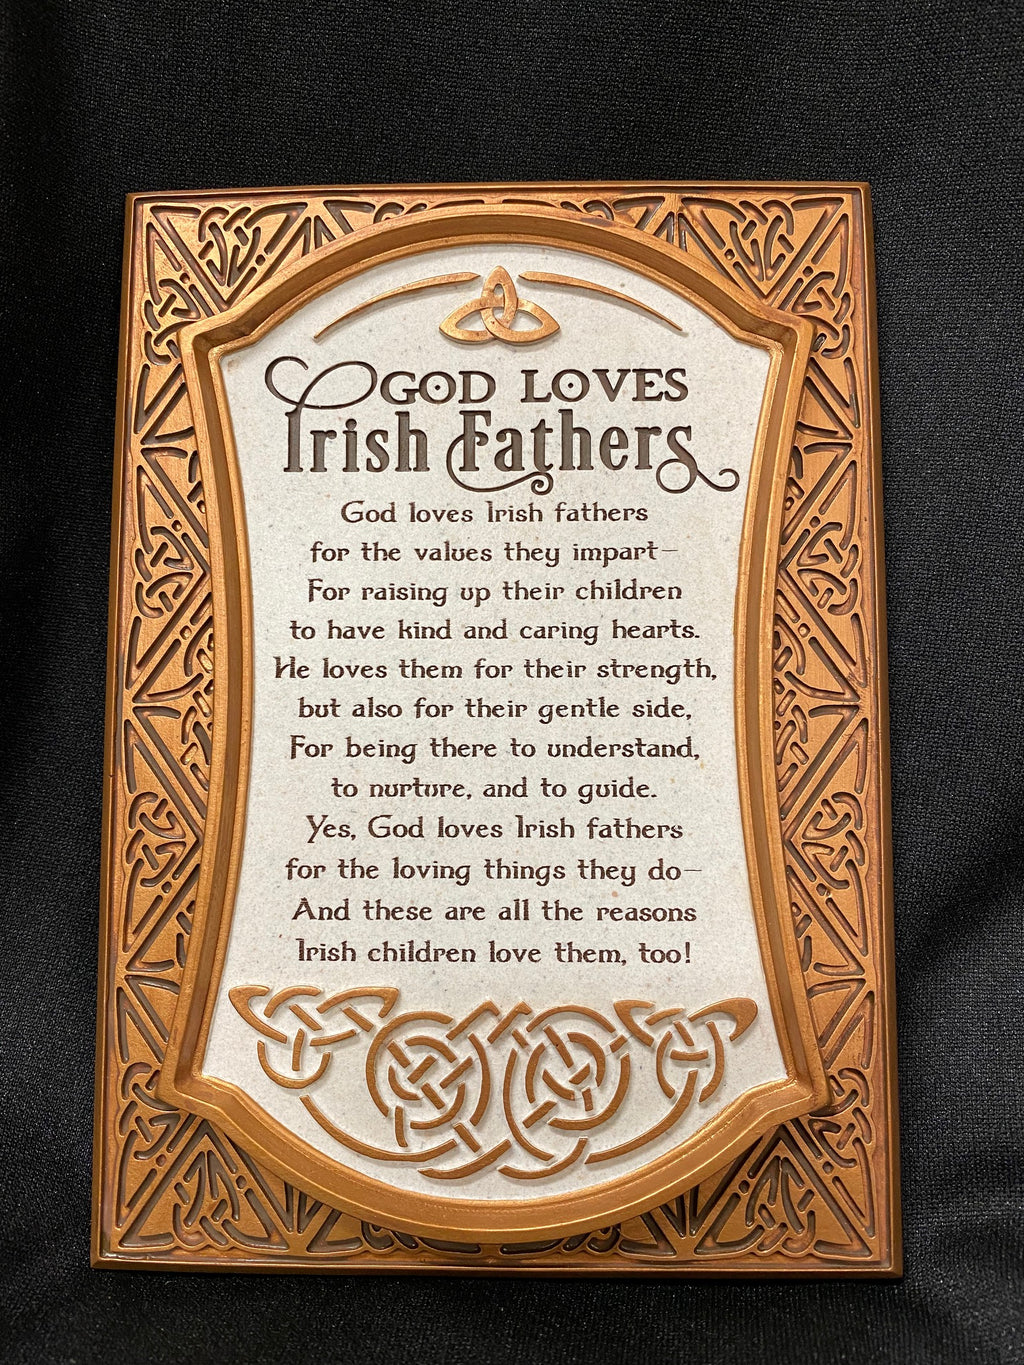 GOD LOVES
Irish Fathers
God loves Irish fathers
for the values they impart—
For raising up their children
to have kind and caring hearts.
He loves them for their strength,
but also for their gentle side,
For being there to understand,
to nurture, and to guide.
Yes, God loves Irish fathers
for the loving things they do—
And these are all the reasons
Irish children love them, too!